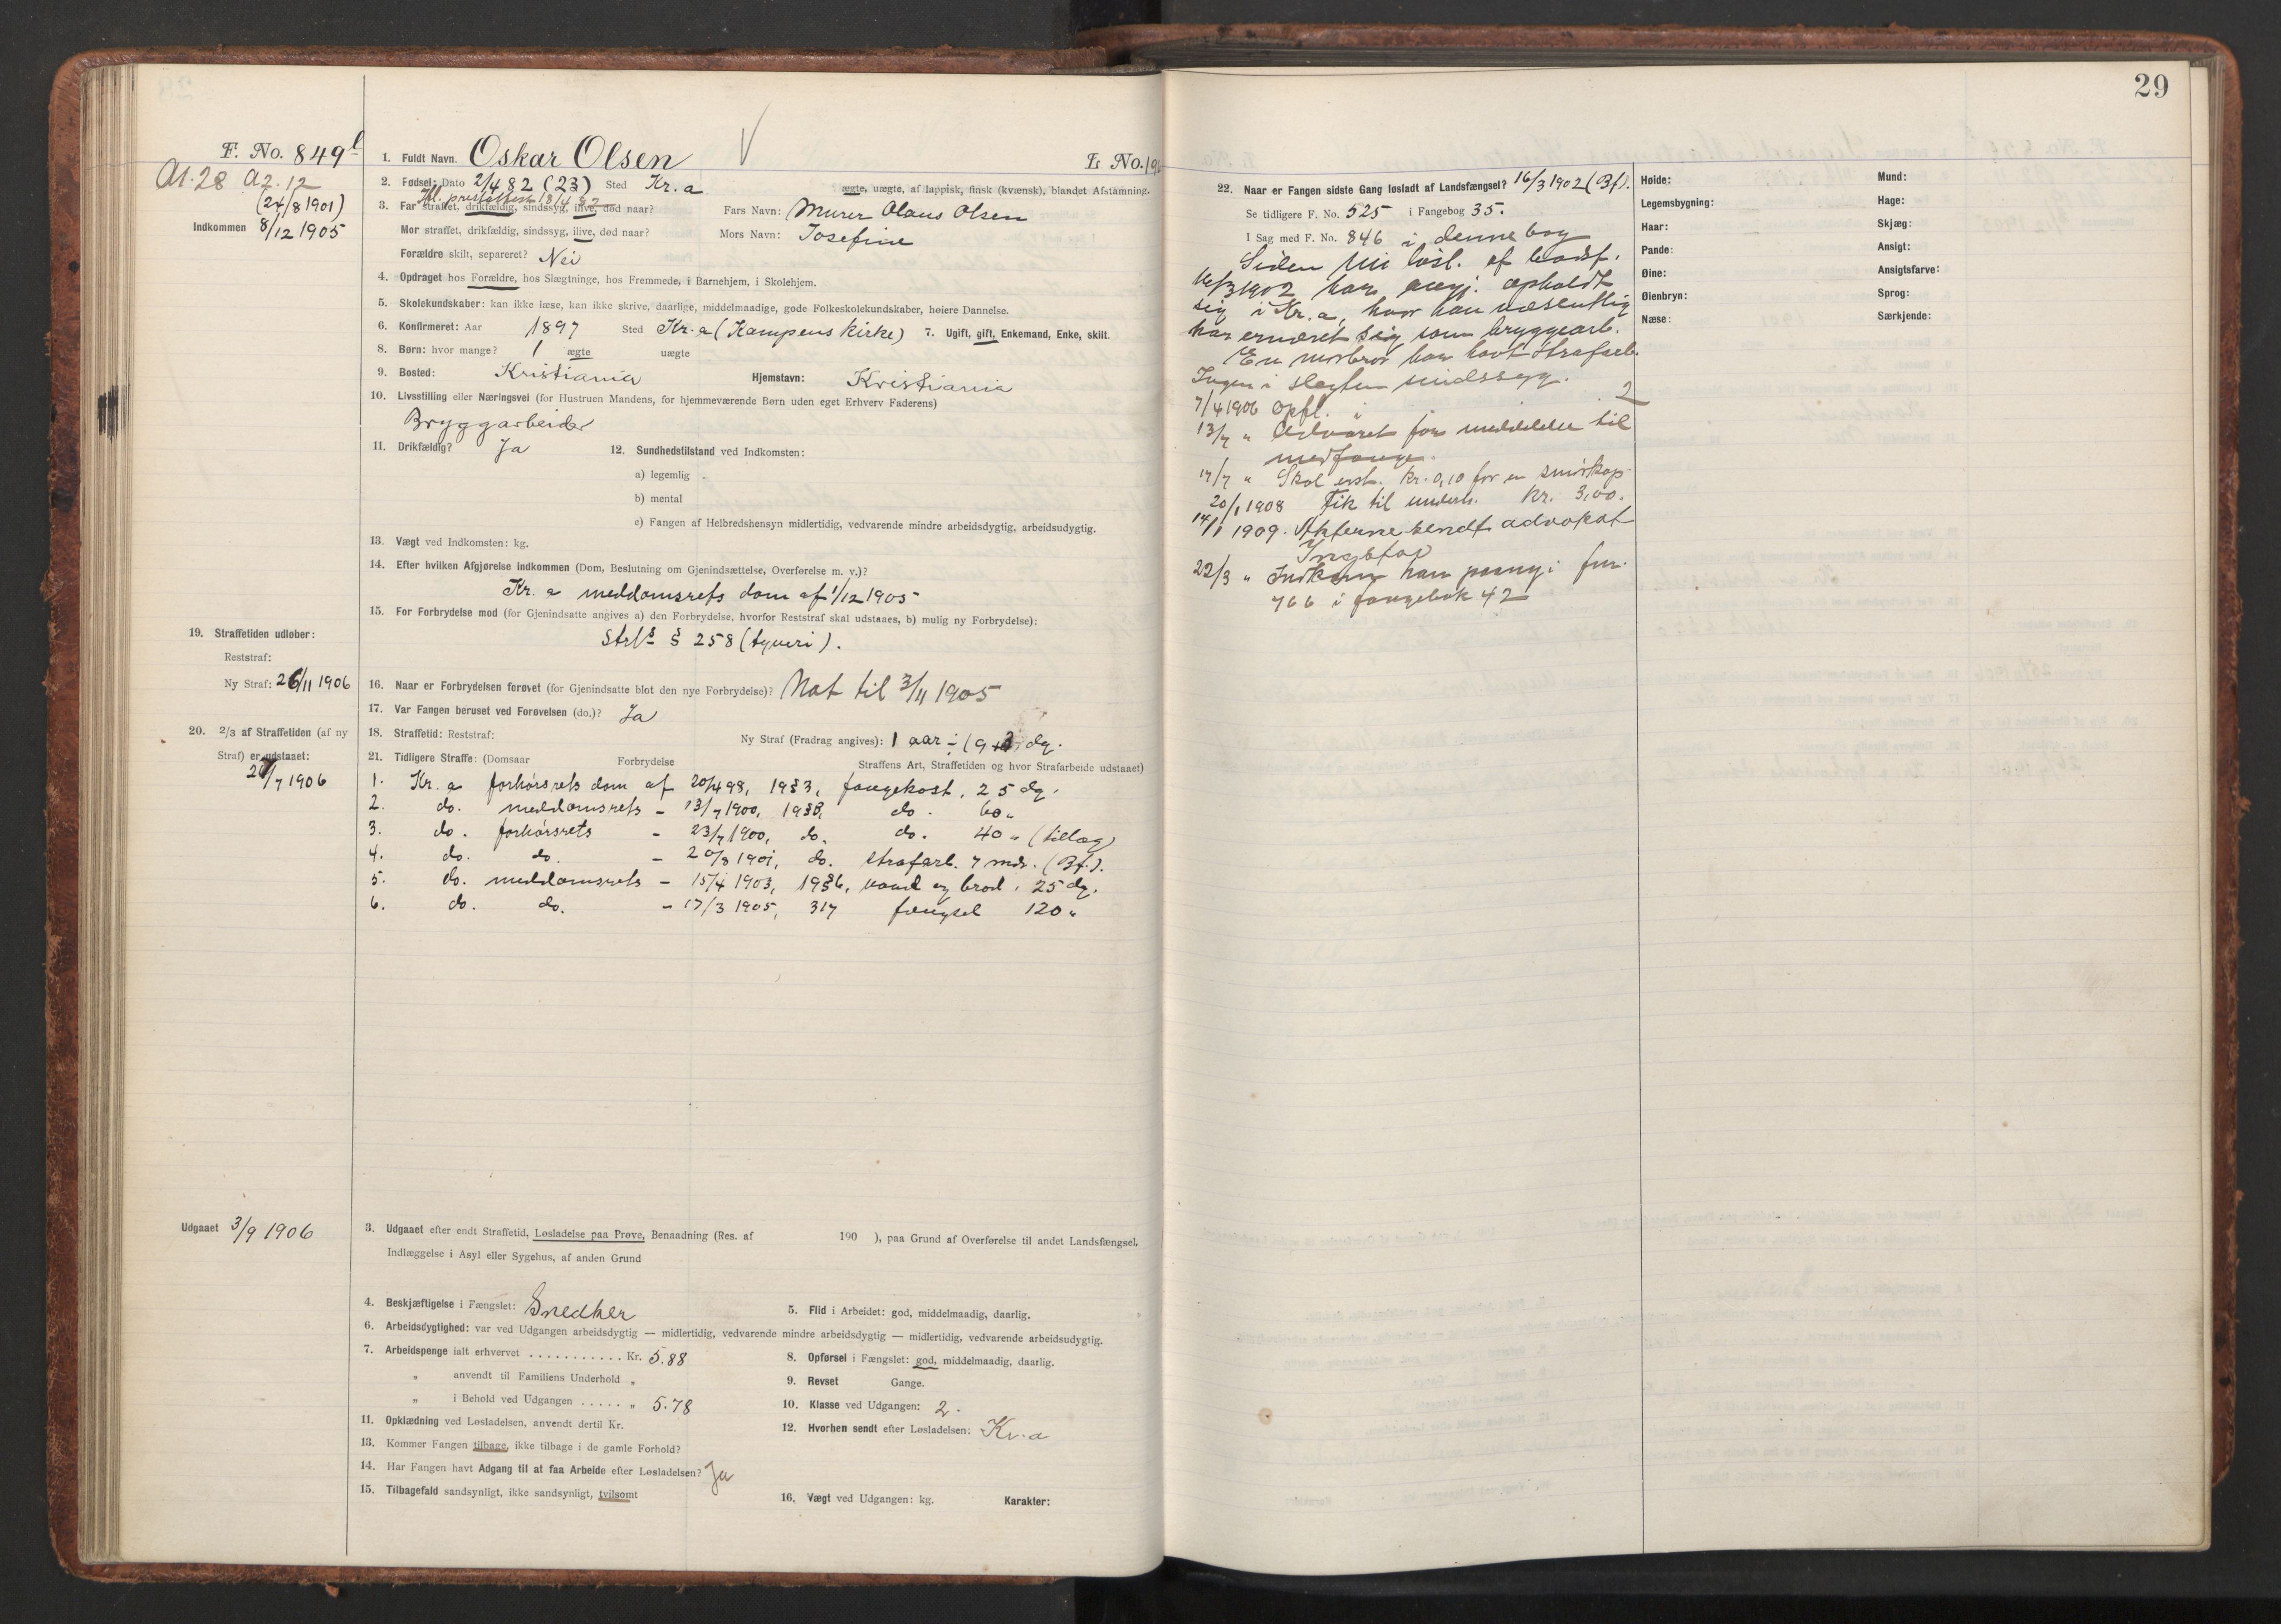 29
F. No. 849
1. Fuldt Navn. Oskar Olsen
L. No.
A1.28 A2.12
(24/8 1901)
Indkommen 8/12 1905
2. Fødsel: Dato 2/4 82 (23) Sted Kr.a
ægte, uægte, af lappisk, finsk (kvænsk), blandet Afstamning.
18/4 82
3. Far straffet, drikfældig, sindssyg, ilive, død naar? Fars Navn: Murer Olaus Olsen
Mor straffet, drikfældig, sindssyg, ilive, død naar? Mors Navn: Josefine
Forældre skilt, separeret? Nei
4. Opdraget hos Forældre, hos Slægtninge, hos Fremmede, i Barnehjem, i Skolehjem.
5. Skolekundskaber: kan ikke læse, kan ikke skrive, daarlige, middelmaadige, gode Folkeskolekundskaber, høiere Dannelse.
6. Konfirmeret: Aar 1897 Sted Kr.a (Kampens kirke) 7. Ugift, gift, Enkemand, Enke, skilt.
8. Børn: hvor mange? 1 ægte uægte
9. Bosted: Kristiania Hjemstavn: Kristiania
10. Livsstilling eller Næringsvei (for Hustruen Mandens, for hjemmeværende Børn uden eget Erhverv Faderens)
Bryggarbeider
11. Drikfældig? Ja 12. Sundhedstilstand ved Indkomsten:
a) legemlig -
b) mental
c) Fangen af Helbredshensyn midlertidig, vedvarende mindre arbeidsdygtig, arbeidsudygtig.
13. Vægt ved Indkomsten: kg.
14. Efter hvilken Afgjørelse indkommen (Dom, Beslutning om Gjenindsættelse, Overførelse m. v.)?
Kr. a meddomsrets dom af 1/12 1905
15. For Forbrydelse mod (for Gjenindsatte angives a) den Forbrydelse, hvorfor Reststraf skal udstaaes, b) mulig ny Forbrydelse):
§ 258 (tyveri).
19. Straffetiden udløber:
Reststraf:
Ny Straf: 26/11 1906
16. Naar er Forbrydelsen forøvet (for Gjenindsatte blot den nye Forbrydelse)? Nat til 3/11 1905
17. Var Fangen beruset ved Forøvelsen (do.)? Ja
20. 2/3 af Straffetiden (af ny
Straf) er udstaaet:
/7 1906
18. Straffetid: Reststraf: Ny Straf (Fradrag angives): 1 aar ÷ (9 + dg.
21. Tidligere Straffe: (Domsaar Forbrydelse Straffens Art, Straffetiden og hvor Strafarbeide udstaaet)
1. Kr. a forhørsrets dom af 20/4 98, 19§3, fangekost, 25 dg.
2. do. meddomsrets - 13/7 1900, do. 60 "
3. do. forhørsrets - 23/7 1900, do. do. 40 " (tillæg)
4. do. do. - 20/8 1901, do. strafarb. 7 mdr. (Bf.).
5. do. meddomsrets - 15/4 1903, 19§6, vand og brød, 25 dg.
6. do. do. - 17/3 1905, 317 fængsel 120 "
Udgaaet 3/9 1906
3. Udgaaet efter endt Straffetid, Løsladelse paa Prøve, Benaadning (Res. af 190 ), paa Grund af Overførelse til andet Landsfængsel,
Indlæggelse i Asyl eller Sygehus, af anden Grund
4. Beskjæftigelse i Fængslet: Snedker 5. Flid i Arbeidet: god, middelmaadig, daarlig.
6. Arbeidsdygtighed: var ved Udgangen arbeidsdygtig — midlertidig, vedvarende mindre arbeidsdygtig — midlertidig, vedvarende arbeidsudygtig.
7. Arbeidspenge ialt erhvervet ........... Kr. 5.88 8. Opførsel i Fængslet: god, middelmaadig, daarlig.
" anvendt til Familiens Underhold " 9. Revset Gange.
" i Behold ved Udgangen ..... " 5.78 10. Klasse ved Udgangen: 2.
11. Opklædning ved Løsladelsen, anvendt dertil Kr. 12. Hvorhen sendt efter Løsladelsen: Kr.a
13. Kommer Fangen tilbage, ikke tilbage i de gamle Forhold?
14. Har Fangen havt Adgang til at faa Arbeide efter Løsladelsen? Ja
15. Tilbagefald sandsynligt, ikke sandsynligt, tvilsomt
16. Vægt ved Udgangen: kg. Karakter:
22. Naar er Fangen sidste Gang løsladt af Landsfængsel? 16/3 1902 (Bf).
Se tidligere F. No. 525 i Fangebog 35.
I Sag med F. No. 846 i denne bog
Siden løsl. af bodsf.
16/3 1902 har opholdt
sig i Kr.a, hvor han væsentlig
har ernæret sig som bryggearb.
En morbror har havt strafarb.
Ingen i slegten sindssyg.
7/4 1906 Opfl. i 2
13/7 " Advaret for meddelelse til
medfange.
17/7 " Skal erst. kr. 0,10 for en
20/1 1908 Fik til underh. kr. 3,00.
14/1 1909. Akterne sendt advokat
22/3 " Indkom han paany: fnr.
766 i fangebok 42
Høide:
Legemsbygning:
Haar:
Pande:
Øine:
Øienbryn:
Næse:
Mund:
Hage:
Skjæg:
Ansigt:
Ansigtsfarve:
Sprog:
Særkjende: